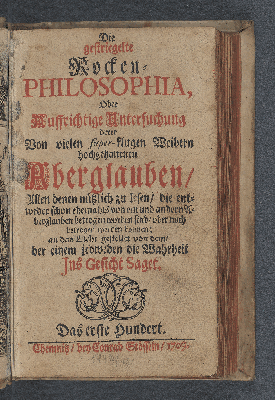 Die
gestriegelte
Rocken-
PHILOSOPHIA,
Oder
Auffrichtige Untersuchung
derer
Von vielen super-klugen Weibern
hochgehaltenen
Aberglauben/
Allen denen nützlich zu lesen/ die ent-
weder schon ehemahls von
betrogen worden sind/ oder noch
betrogen werden können/
an den Tag gestellet von dem/
der einem jedweden die Wahrheit
Ins Gesicht Saget.
Das erste Hundert.
Chemnitz/ bey Conrad Stösseln/